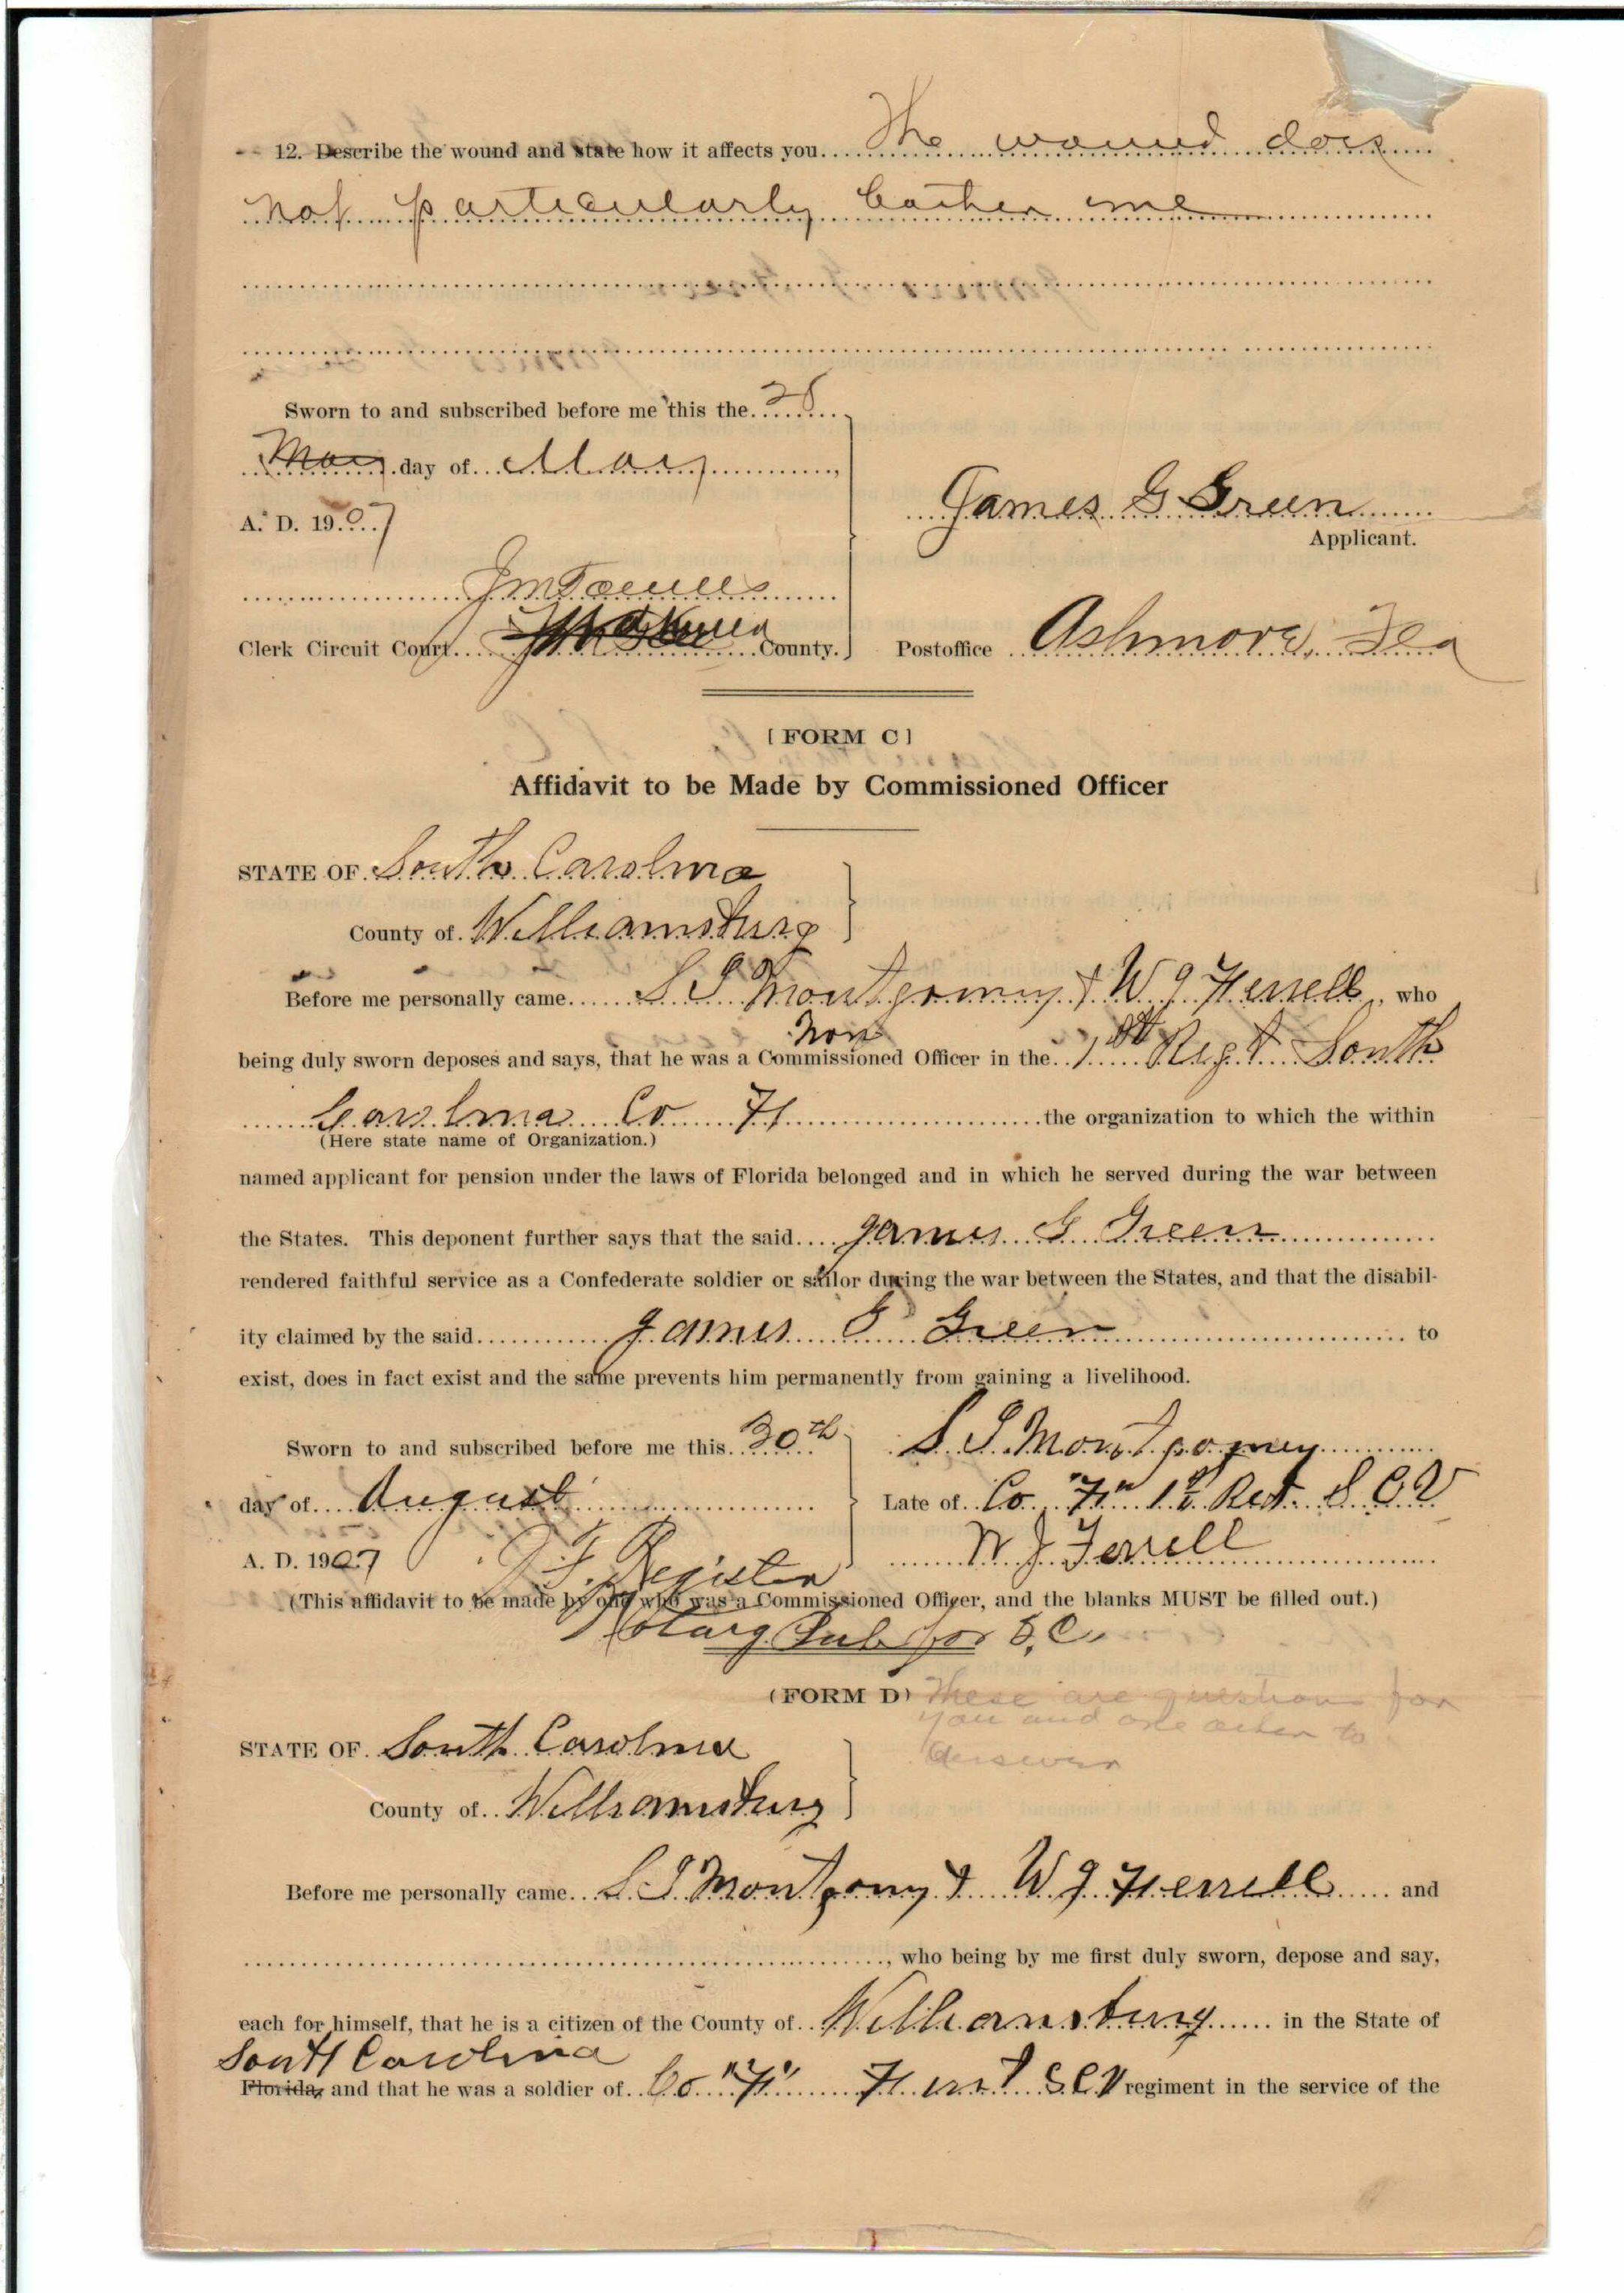 12. Describe the wound and state how it affects you The wound does
not particularly bother me
Sworn to and subscribed before me this the 28
May day of May,
A. D. 1907
James G Green
Applicant.
Clerk Circuit Court County.
Postoffice Ashmore, Fla
[FORM C]
Affidavit to be Made by Commissioned Officer
STATE OF South Carolina
County of Williamsburg
Before me personally came S J Montgomery & W J Ferrell, who
Non
being duly sworn deposes and says, that he was a Commissioned Officer in the 1st Regt South
Carolina Co F the organization to which the within
(Here state name of Organization.)
named applicant for pension under the laws of Florida belonged and in which he served during the war between
the States. This deponent further says that the said James G Green
rendered faithful service as a Confederate soldier or sailor during the war between the States, and that the disabil-
ity claimed by the said James G Green to
exist, does in fact exist and the same prevents him permanently from gaining a livelihood.
Sworn to and subscribed before me this 30th
S J Montgomery
day of August
Late of Co "F" 1st Ret. S C V
A. D. 1907
W J Ferrell
J. F. Register
(This affidavit to be made by one who was a Commissioned Officer, and the blanks MUST be filled out.)
Notary Pub for S, C.
(FORM D) These are questions for
you and one other to
answer
STATE OF South Carolina
County of Williamsburg
Before me personally came S J Montgomy & W J Ferrell and
, who being by me first duly sworn, depose and say,
each for himself, that he is a citizen of the County of Williamsburg in the State of
South Carolina
Florida, and that he was a soldier of Co "F" First S C V regiment in the service of the